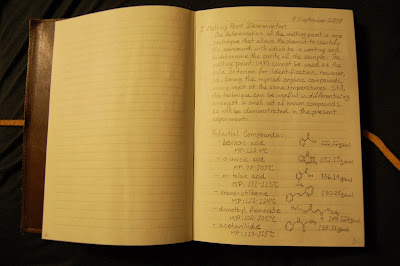 I. Melting Point Determination:
The determination of the melting point is one
technique that allows the chemist to identify
the compound with which he is working and
to determine the purity of the sample. The
melting point (MP) cannot be used as the
sole criterion for identification, however,
among the myriad organic compounds,
many melt at the same temperatures. Still,
the technique can be useful in differentiating
amongst a small set of known compounds
as will be demonstrated in the present
experiment.
Potential Compounds:
- benzoic acid
MP: 122.4°C
- o-anisic acid
- m-toluic acid
MP: 111-113°C
- trans-stilbene
MP: 122-124°C
- dimethyl fumarate
- acetanilide
MP: 113-115°C